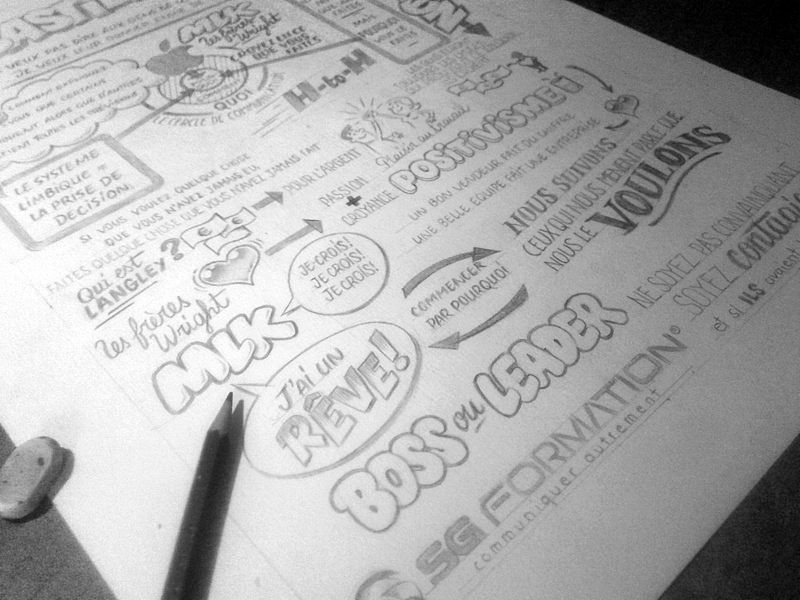 VEUX PAS
MLK
les frères Wright
MAIS
POURQUOI
VOUS LE FAITES
QUE VOUS FAITES
QUOI
LE CERCLE DE COMMUNICATION
H-to-H
LE SYSTEME
LIMBIQUE =
LA PRISE DE
DÉCISION.
SI VOUS VOULEZ QUELQUE CHOSE
QUE VOUS N'AVEZ JAMAIS EU
FAITES QUELQUE CHOSE QUE VOUS N'AVEZ JAMAIS FAIT
POUR L'ARGENT
PASSION
+
CROYANCE
Plaisir au travail
POSITIVISME
UN BON VENDEUR FAIT DU CHIFFRE
UNE BELLE ÉQUIPE FAIT UNE ENTREPRISE
NOUS SUIVONS
CEUX QUI NOUS MÈNENT PARCE QUE
NOUS LE VOULONS
Qui est
LANGLEY?
les frères
Wright
MLK
JE CROIS!
JE CROIS!
JE CROIS!
J'AI UN
RÊVE!
COMMENCER
PAR POURQUOI
BOSS ou LEADER
NE SOYEZ PAS CONVAINQUANT
SOYEZ contagieux
et si ILS avaient
SG FORMATION®
communiquer autrement